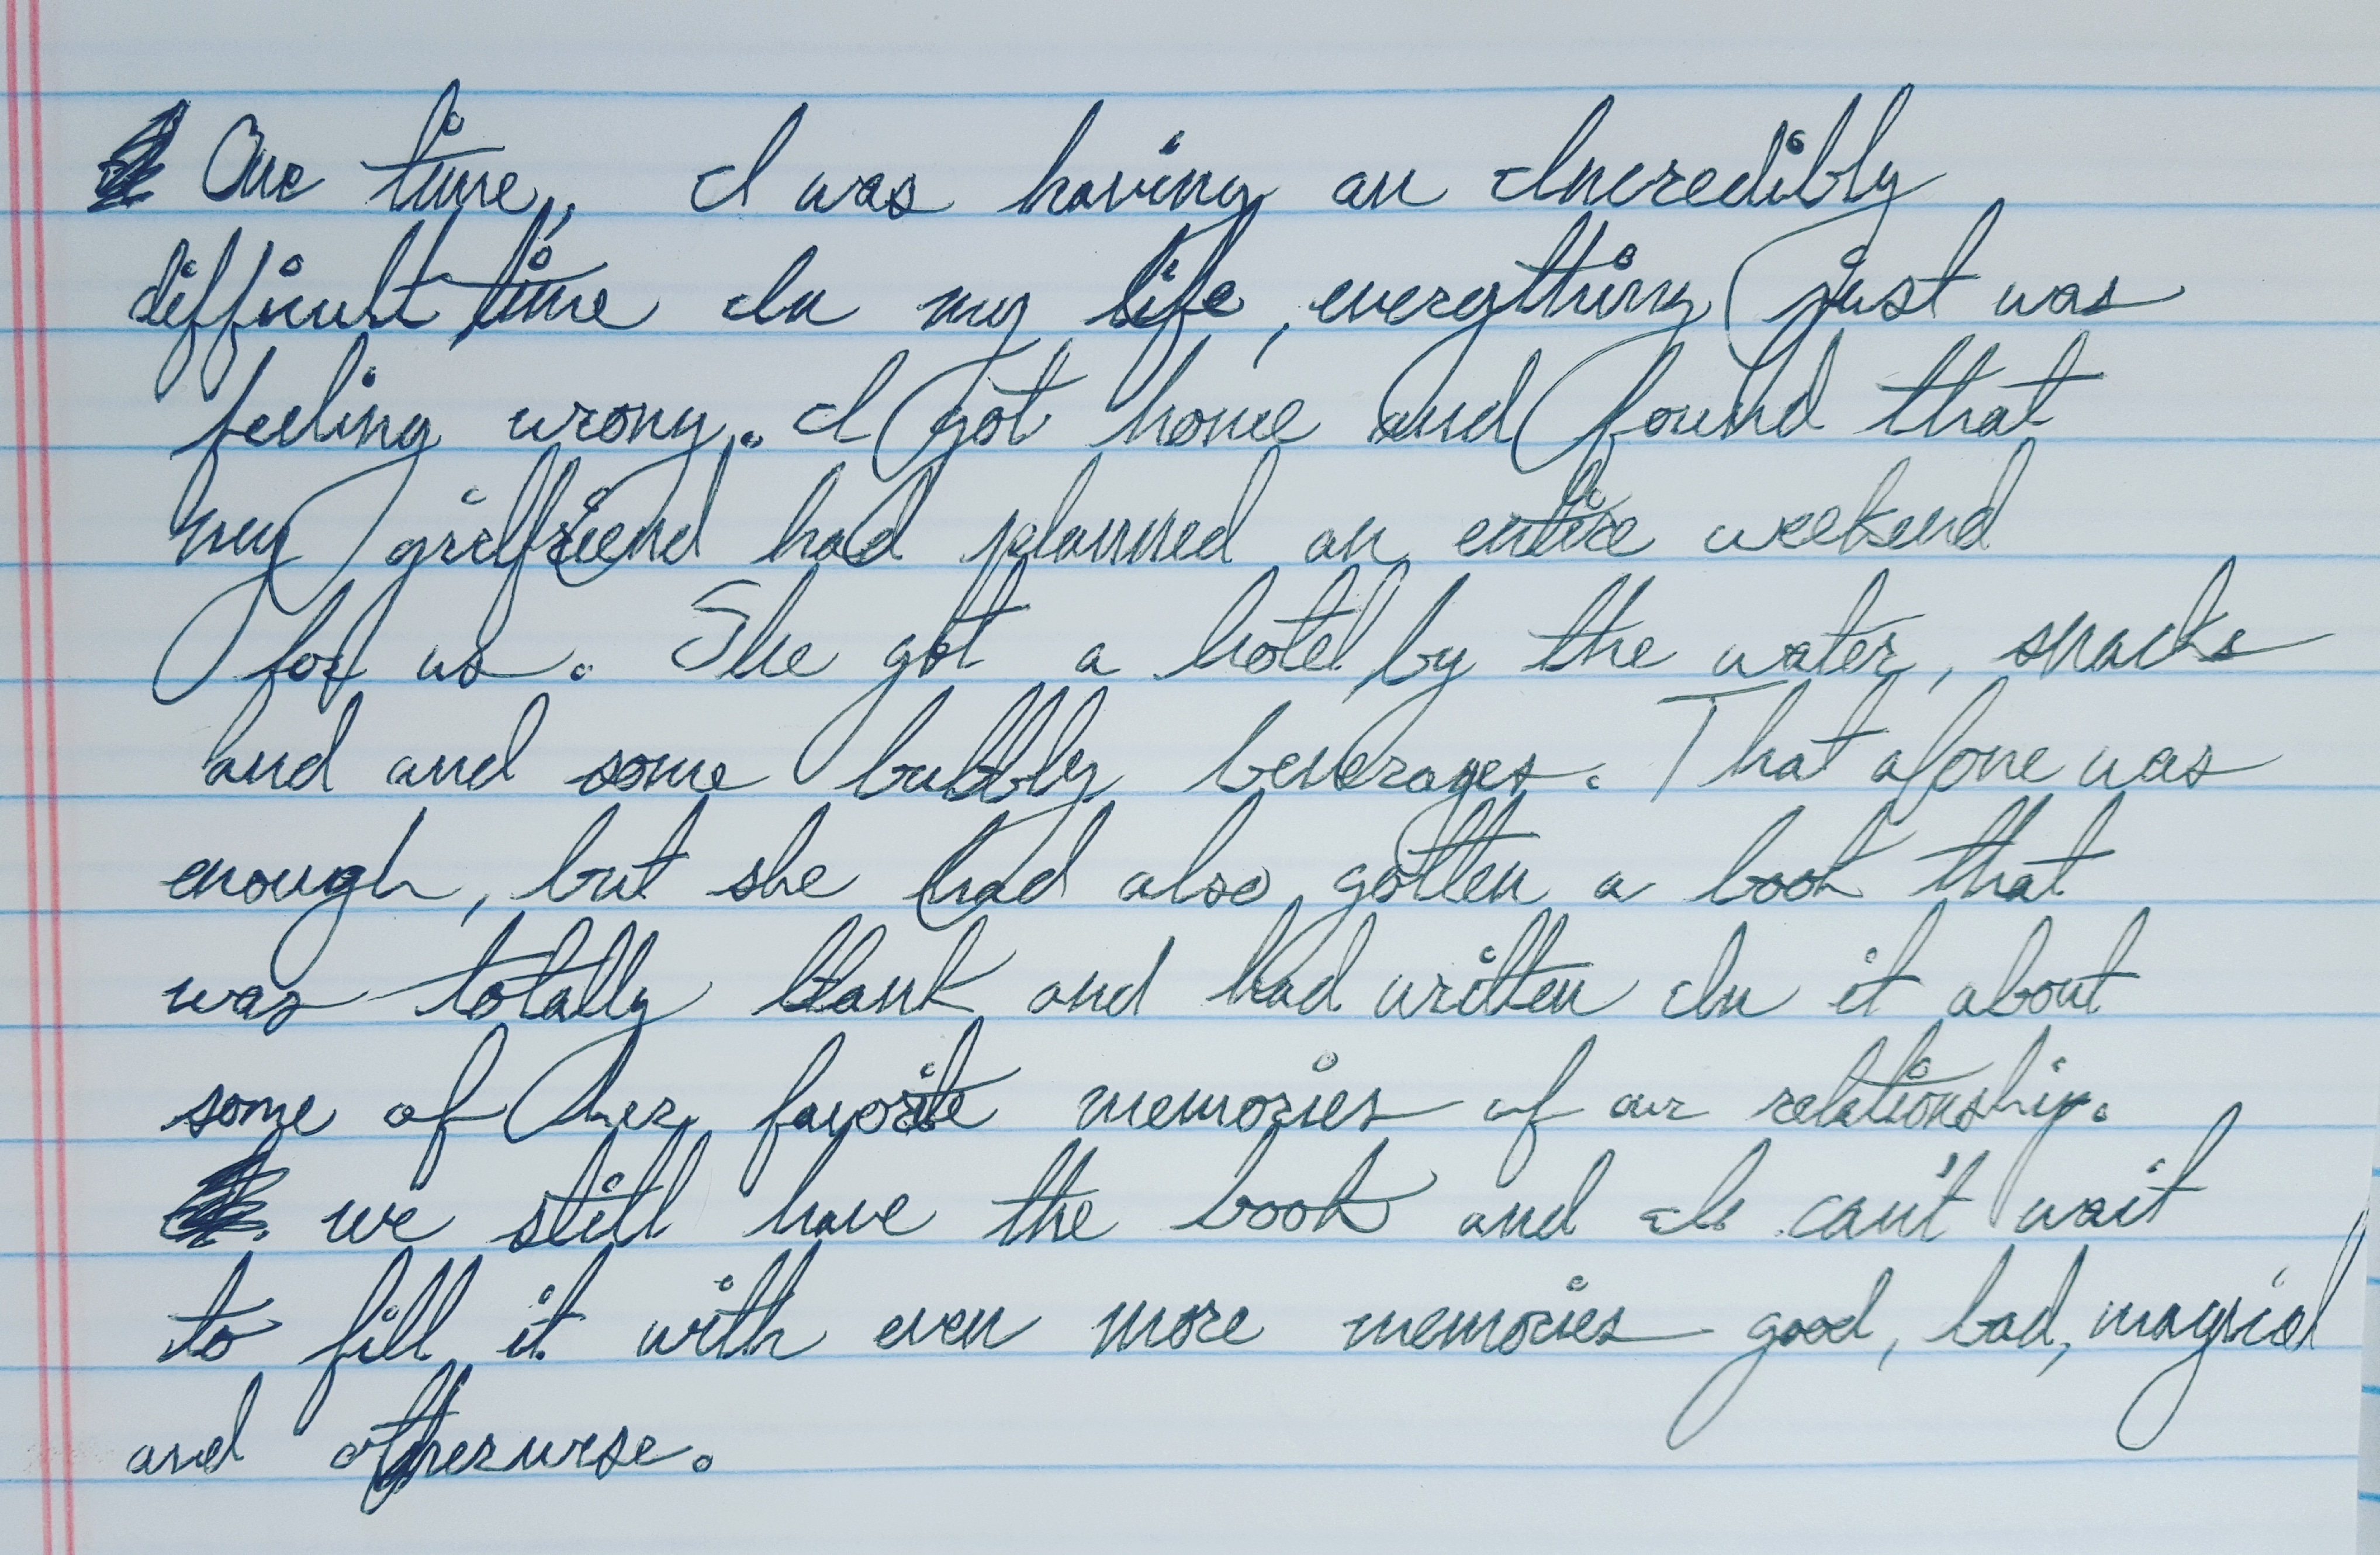 One time, I was having an Incredibly
difficult time In my life, everything just was
feeling wrong. I got home and found that
my girlfriend had planned an entire weekend
for us. She got a hotel by the water, snacks
and and some bubbly beverages. That alone was
enough, but she had also gotten a book that
was totally blank and had written In it about
some of her favorite memories of our relationship.
we still have the book and I can't wait
to fill it with even more memories good, bad, magical
and otherwise.